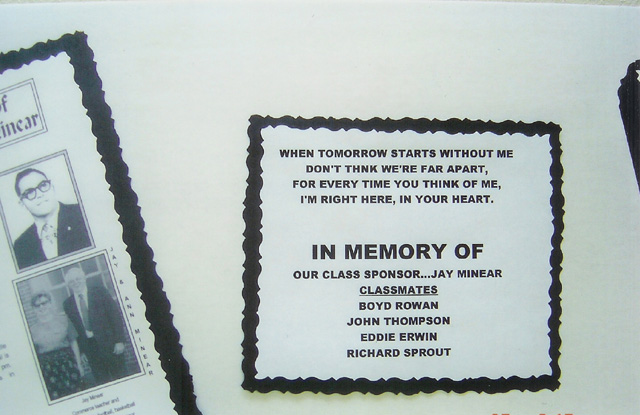 of
Minear
JAY & ANN MINEAR
Jay Minear
Commerce teacher and
football, basketball
WHEN TOMORROW STARTS WITHOUT ME
DON'T THNK WE'RE FAR APART,
FOR EVERY TIME YOU THINK OF ME,
I'M RIGHT HERE, IN YOUR HEART.
IN MEMORY OF
OUR CLASS SPONSOR...JAY MINEAR
CLASSMATES
BOYD ROWAN
JOHN THOMPSON
EDDIE ERWIN
RICHARD SPROUT